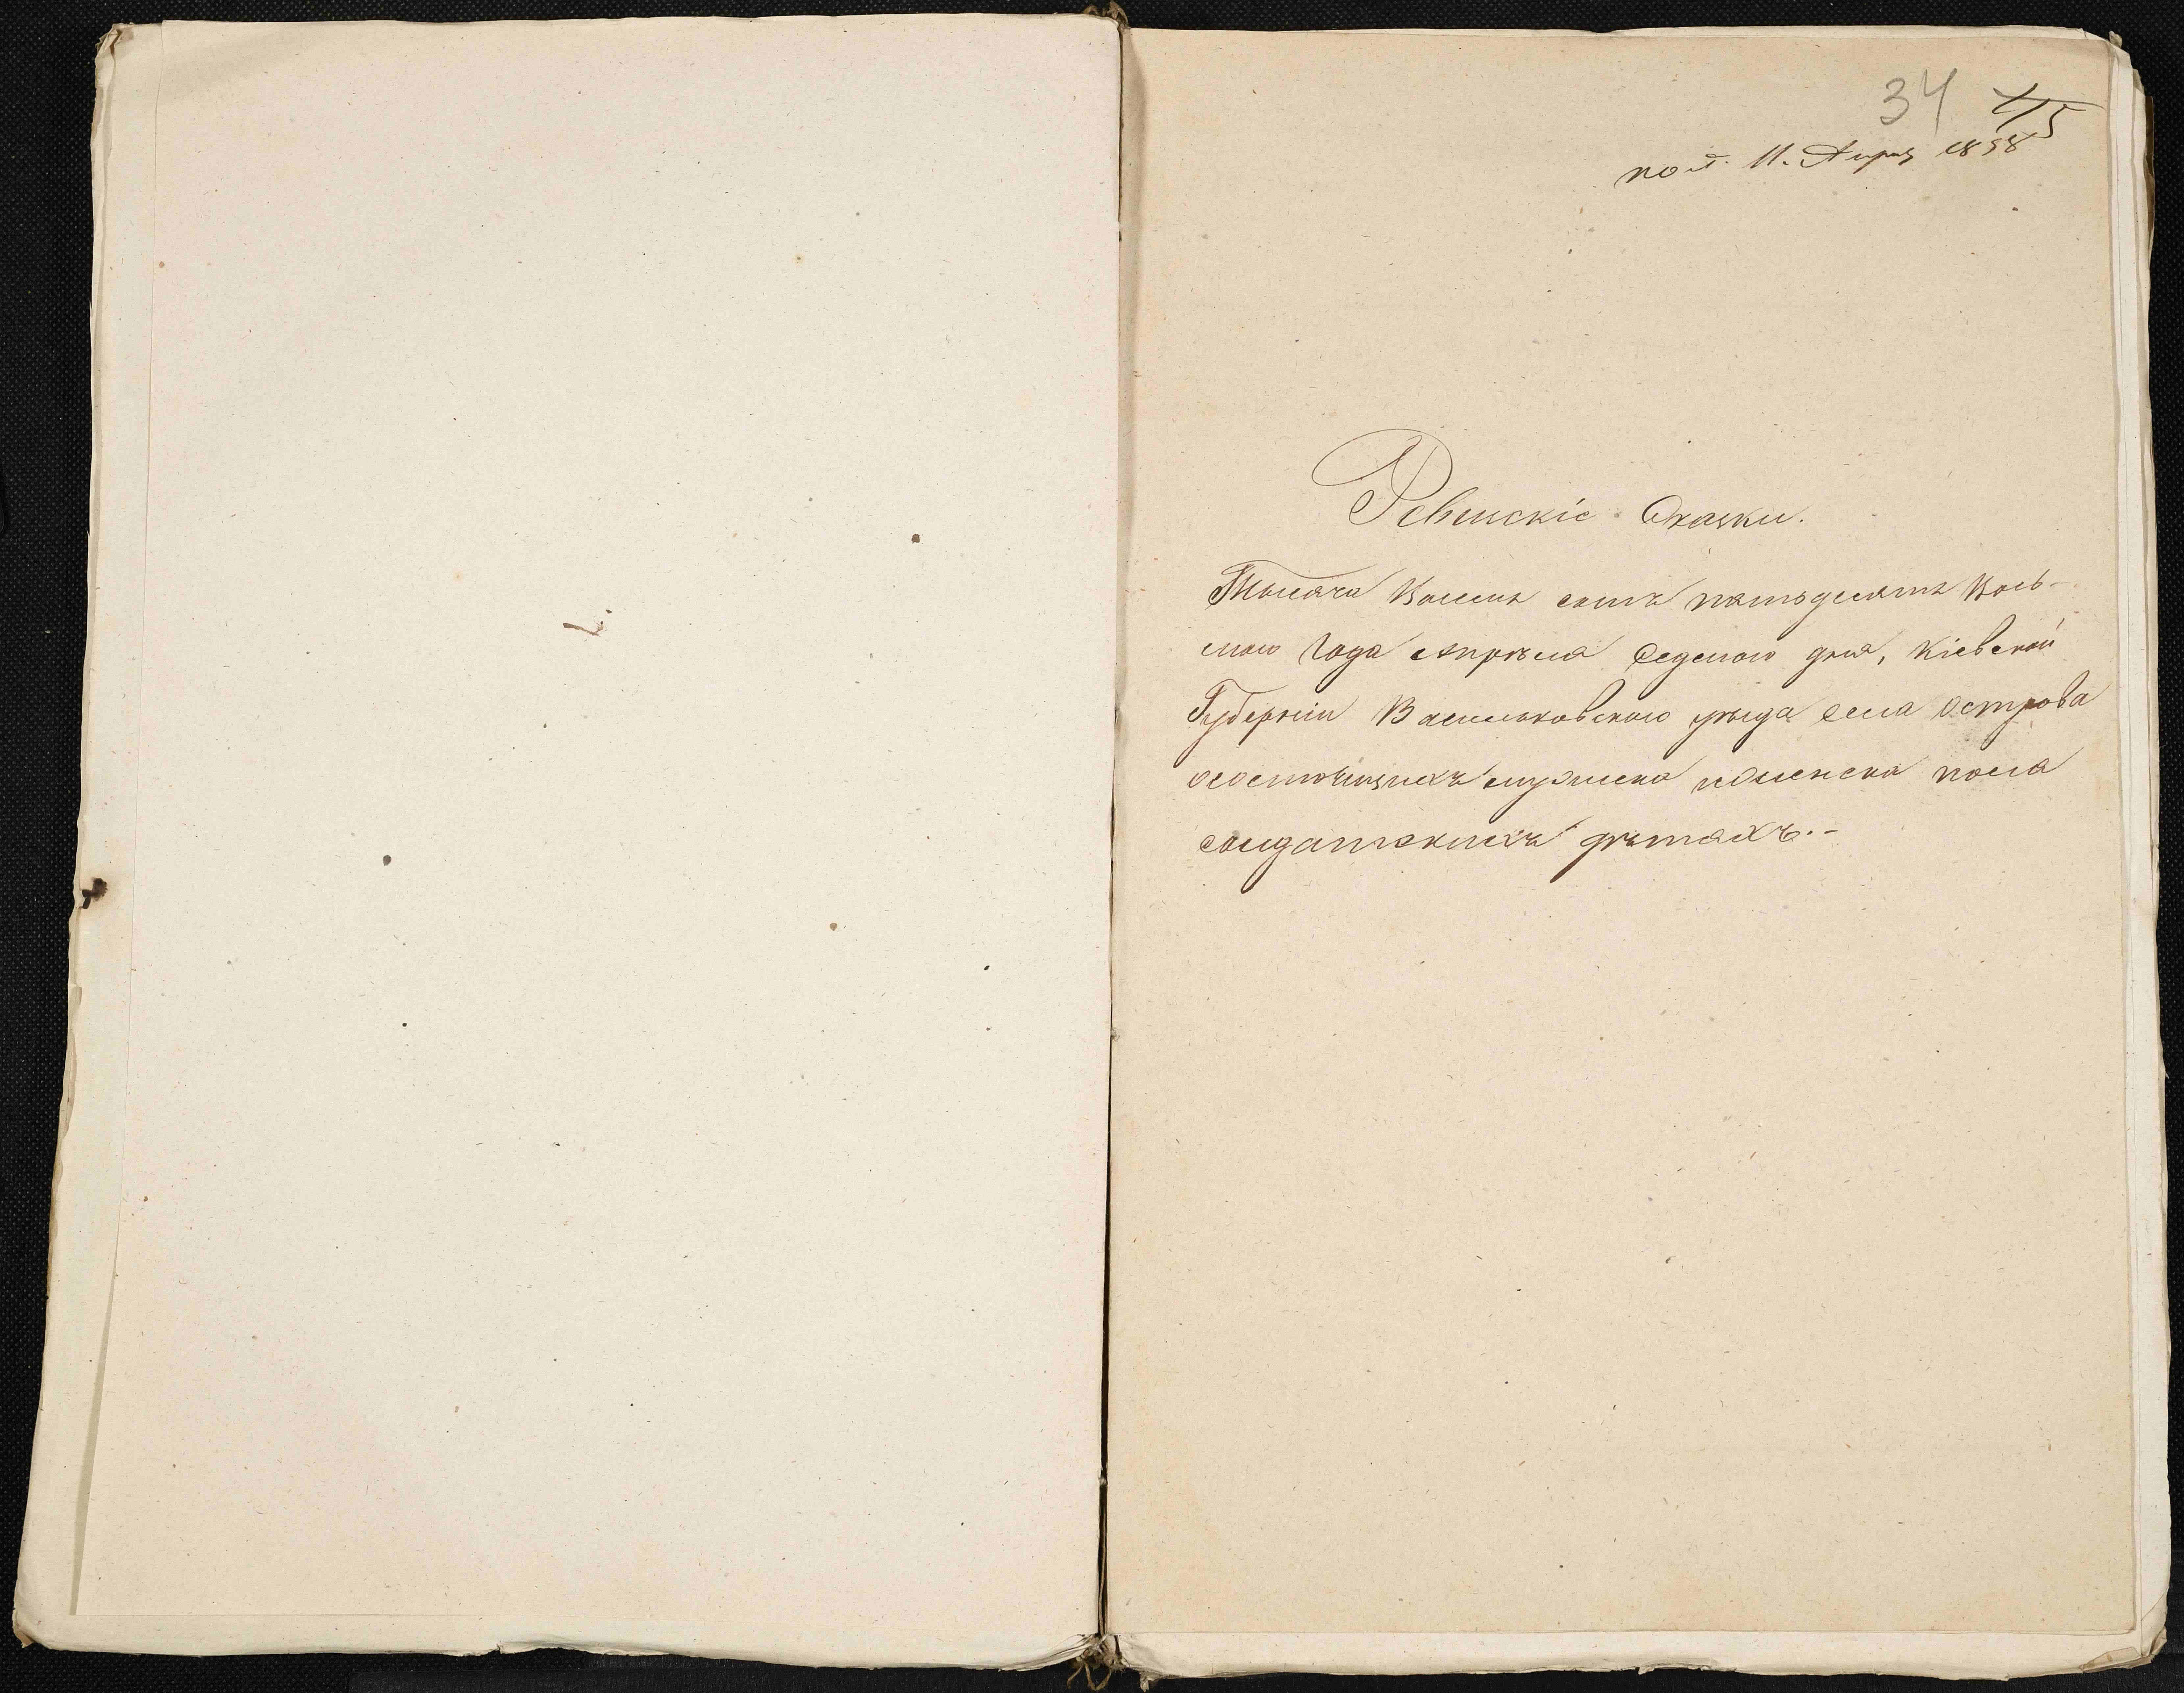 34
пол. 11. Апрля 1858
Ревизскіе Сказки.
Тысяча Восемь сотъ пятьдесятъ Вось-
мого Года Апрѣля Седмого дня, Кіевской
Губерніи Васильковскаго уѣзда села Острова
о состоящихъ мужеска и женска пола
солдатскихъ дѣтяхъ.-